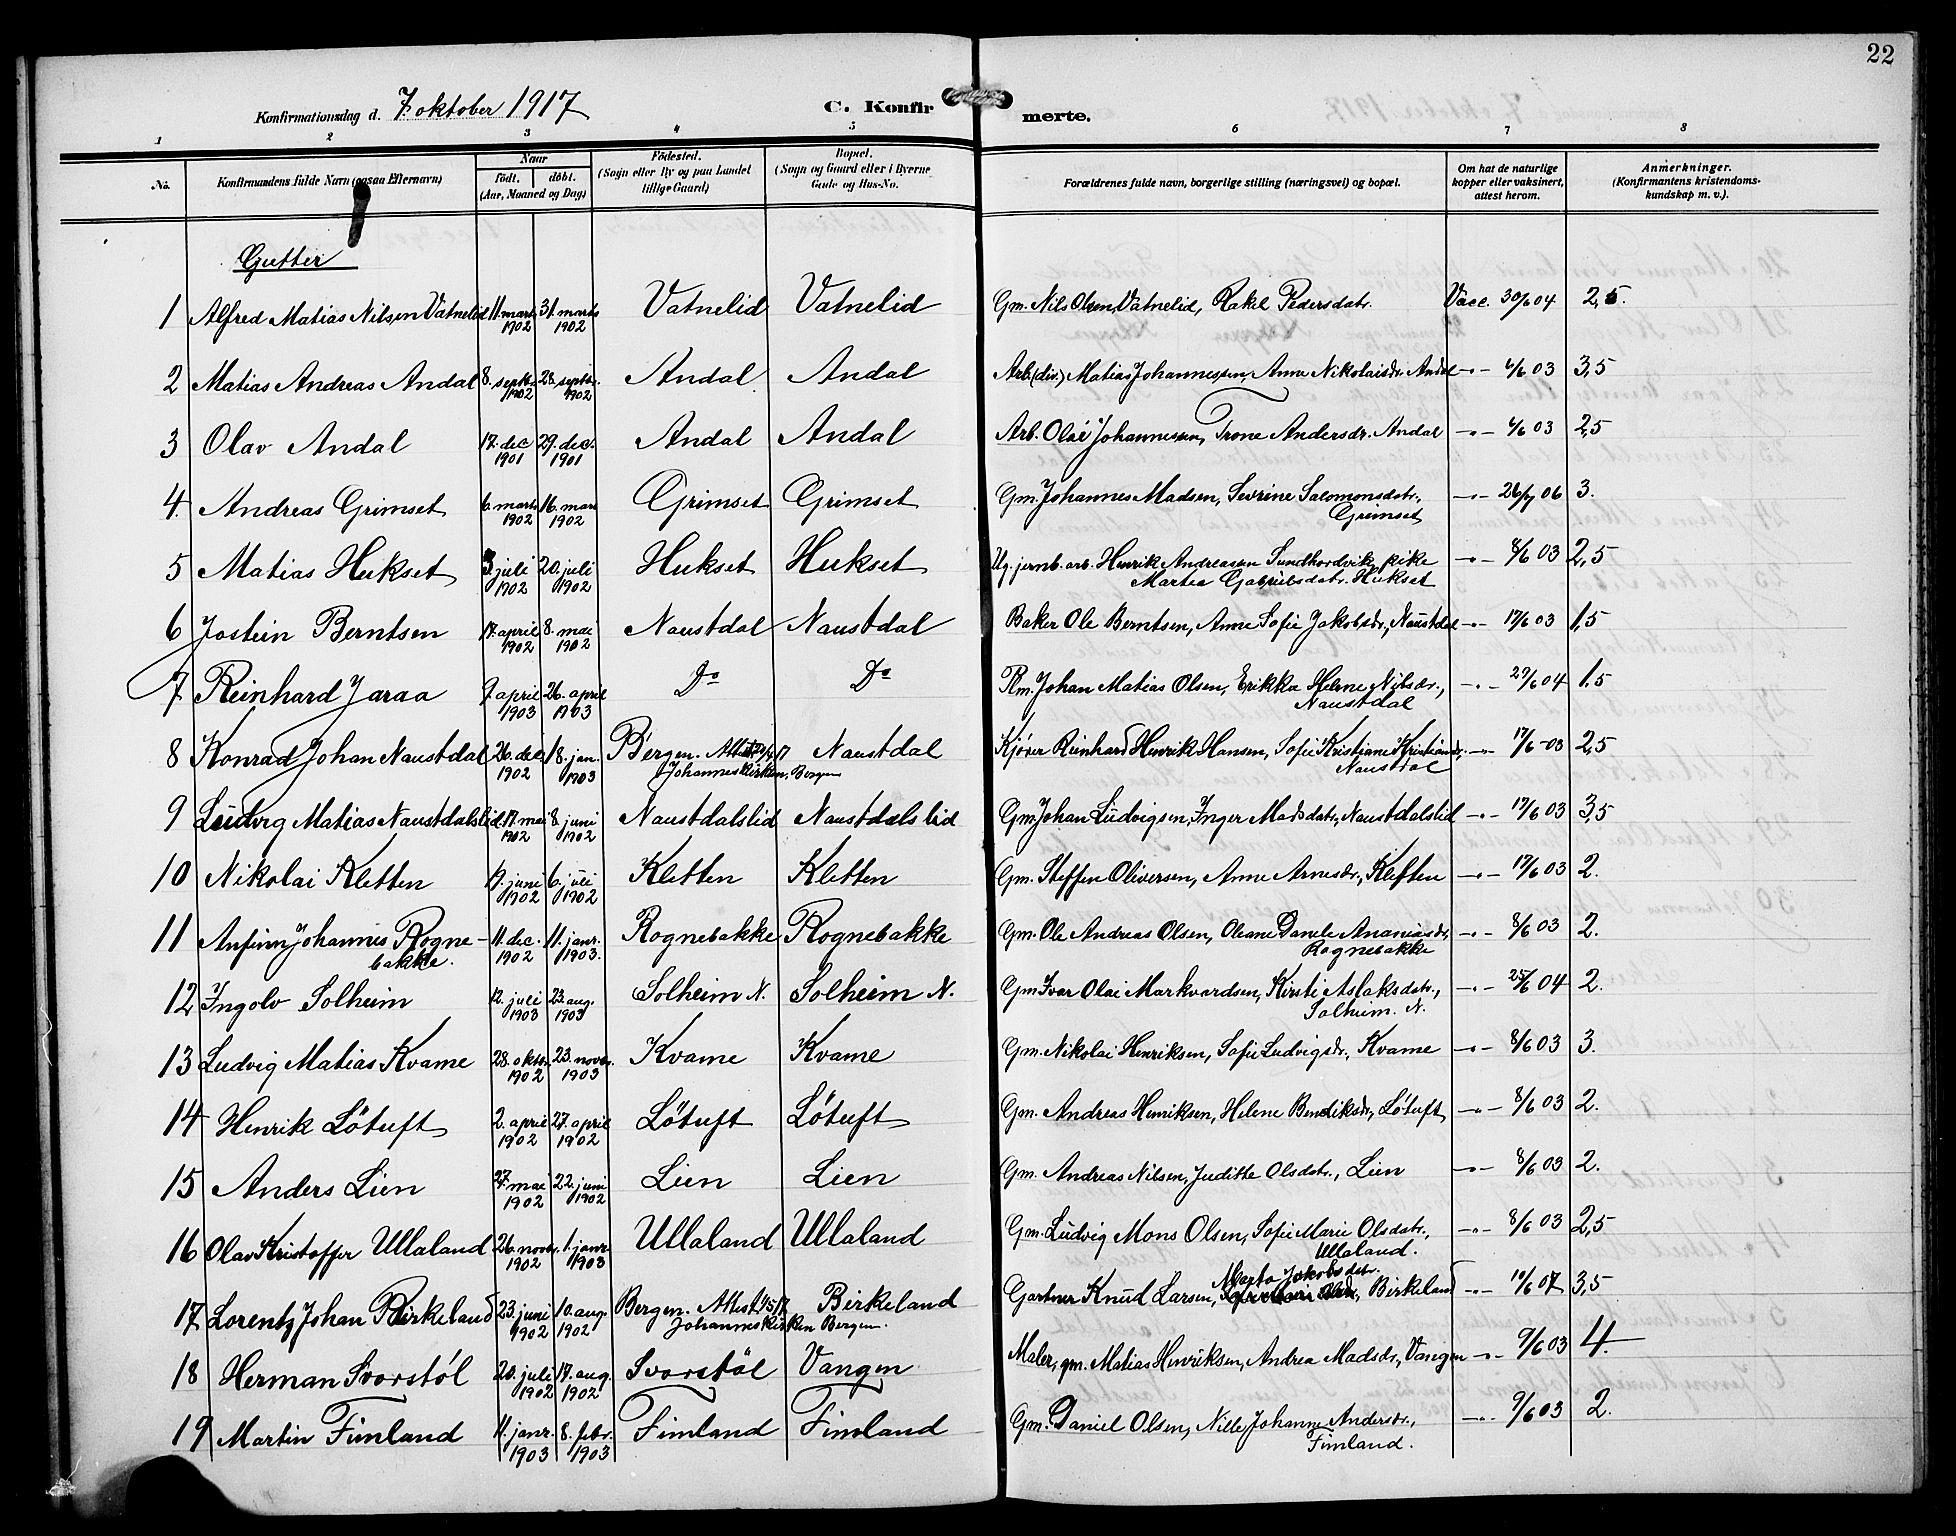 22
Konfirmationsdag d. 7. oktober 1917 C. Konfirmerte.
1 2 3 4 5 6 7 8
No. Konfirmandens fulde Navn (ogsaa Efternavn) Naar födt. döbt. (Aar, Maaned og Dag) Födested. (Sogn eller By og paa Landet tillige Gaard) Bopæl. (Sogn og Gaard eller i Byerne Gade og Hus-No. Forældrenes fulde navn, borgerlige stilling (næringsvei) og bopæl. Om hat de naturlige kopper eller vaksinert, attest herom. Anmerkninger. (Konfirmantens kristendomskundskap m. v.).
Gutter
1 Alfred Matias Nilsen Vatnelid 11. marts 1902 31. marts 1902 Vatnelid Vatnelid Gm. Nils Olsen Vatnelid, Rakel Pedersdatr. Vacc. 30/6 04 2,5.
2 Matias Andreas Andal 8. septbr. 1902 28. septbr. 1902 Andal Andal Arb. (div.) Matias Johannessen, Anne Nikolaisdr. Andal -"- 4/6 03 3,5
3 Olav Andal 17. dec. 1901 29. dec. 1901 Andal Andal Arb. Olai Johannessen, Trone Andersdr. Andal -"- 4/6 03 2,5
4. Andreas Grimset 6. marts 1902 16. mars 1902 Grimset Grimset Gm. Johannes Madsen, Sevrine Salomonsdatr.,
Grimset -"- 26/7 06 3.
5 Matias Hukset 3. juli 1902 20. juli 1902 Hukset Hukset Ug. jernb. arb. Henrik Andreassen Sundhordvik, pike
Martea Gabrielsdatr. Hukset -"- 8/6 03 2,5
6 Jostein Berntsen 17. april 1902 8. mai 1902 Naustdal Naustdal Baker Ole Berntsen, Anne Sofie Jakobsdr., Naustdal -"- 17/6 03 1,5
7 Reinhard Jaraa 9. april 1903 26. april 1903 Do Do Rm. Johan Matias Olsen, Erikka Helene Nilsdr.,
Naustdal -"- 27/6 04 1,5
8 Konrad Johan Naustdal 26. dec. 1902 18. jan. 1903 Bergen. Attest
Johanneskirken, Bergen Naustdal Kjører Reinhard Henrik Hansen, Sofie Kristiane Kristiansdr.,
Naustdal -"- 17/6 03 2,5
9 Ludvig Matias Naustdalslid 17. mai 1902 8. juni 1902 Naustdalslid Naustdalslid Gm. Johan Ludvigsen, Inger Madsdatr., Naustdalslid -"- 17/6 03 3,5
10 Nikolai Kletten 17. juni 1902 6. juli 1902 Kletten Kletten Gm. Steffen Oliversen, Anne Arnesdr., Kletten -"- 17/6 03 2.
11 Anfinn Johannes Rogne-
bakke. 11. dec. 1902 11. janr. 1903. Rognebakke Rognebakke Gm. Ole Andreas Olsen, Oleane Danele Ananiasdr.,
Rognebakke -"- 8/6 03 2.
12 Ingolv Solheim 12. juli 1903 23. aug. 1903 Solheim N. Solheim N. Gm. Ivar Olai Markvardsen, Kirsti Aslaksdatr.,
Solheim. N. -"- 25/6 04 2.
13 Ludvig Matias Kvame 28. oktbr. 1902 23. novbr. 1903 Kvame Kvame Gm. Nikolai Henriksen, Sofie Ludvigsdr., Kvame -"- 8/6 03 3.
14 Henrik Lötuft 2. april 1902 27. april 1902 Lötuft Lötuft Gm. Andreas Henriksen, Helene Bendiksdr., Lötuft -"- 8/6 03 2.
15 Anders Lien 27. mai 1902 22. juni 1902 Lien Lien Gm. Andreas Nilsen, Juditte Olsdatr., Lien -"- 8/6 03 2.
16 Olav Kristoffer Ullaland 26. novbr. 1902 1. janr. 1903 Ullaland Ullaland Gm. Ludvig Mons Olsen, Sofie Marie Olsdatr.,
Ullaland. -"- 8/6 03 2,5
17 Lorentz Johan Birkeland 23. juni 1902 10. aug. 1902 Bergen. Attest 1/5 17
Johanneskirken Bergen. Birkeland Gartner Knud Larsen, Marta Jakobsdatr. Birkeland -"- 10/6 07 3,5
18 Herman Svorstöl 20. juli 1902 17. aug. 1902 Svorstöl Vangen Maler, gm. Matias Henriksen, Andrea Madsdr., Vangen -"- 9/6 03 4.
19 Martin Fimland 11. janr. 1903 8. febr. 1903 Fimland Fimland Gm. Daniel Olsen, Nille Johanne Andersdr.,
Fimland. -"- 9/6 03 2.